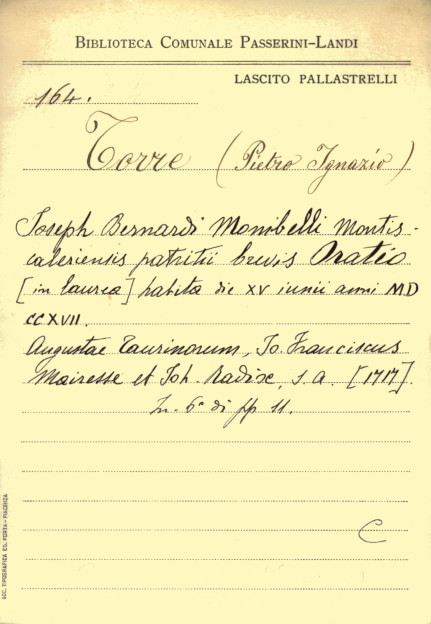 BIBLIOTECA COMUNALE PASSERINI-LANDI
LASCITO PALLASTRELLI
164.
Torre (Pietro Ignazio)
Joseph Bernardi Monibelli Montis-
caleriensis patritii brevis Oratio
[in laurea] habita die XV iunii anni MD
CCXVII.
Augustae Taurinorum, Jo. Franciscus
Mairesse et Joh. Radix, s. a. [1717].
In-6° di pp 11.
C
SOC. TIPOGRAFICA ED. PORTA-PIACENZA